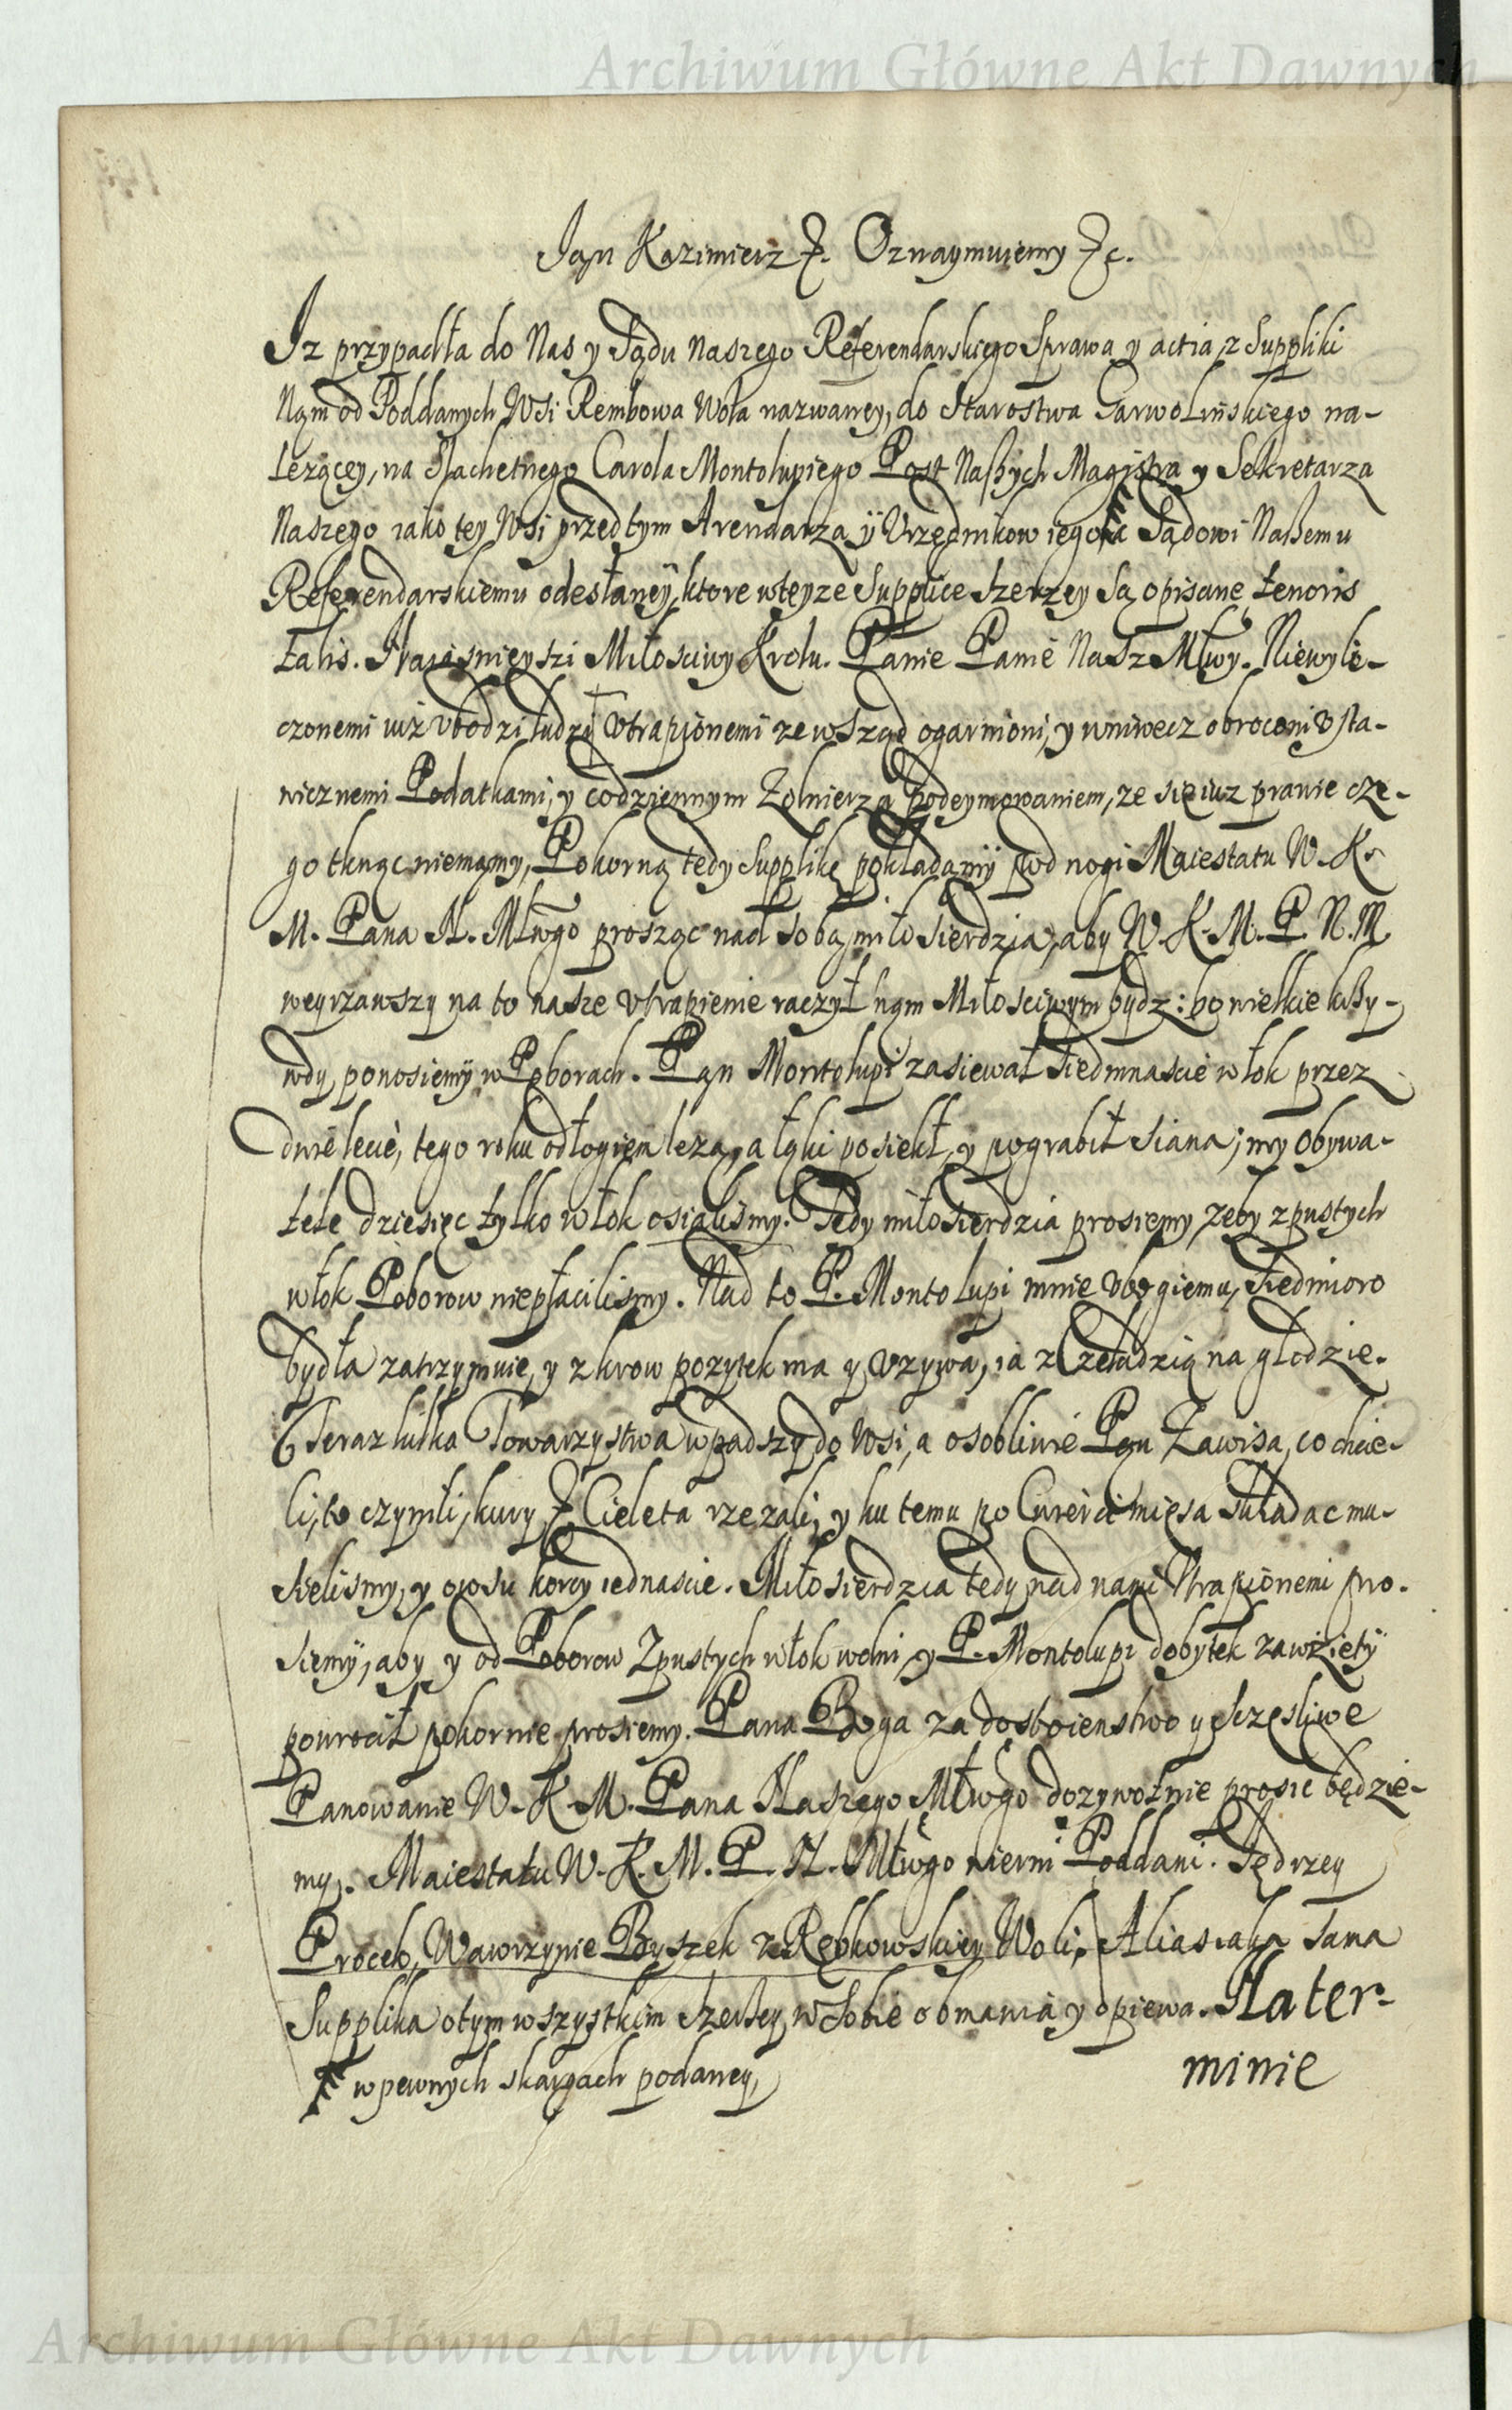 Archiwum Główne Akt Dawnych
Jan Kazimierz &. Oznaymuiemy &c.
Iz przypadła do Nas y Sądu Naszego Referendarskiego Sprawa y actia, z Suppliki
Nąm od Poddanych Wsi Rembowa Wola nazwaney, do Starostwa Garwolińskiego na-
lezącey, na Slachetnego Carola Montolupiego Post Naszych Magistra y Sekretarza
Naszego iako tey Wsi przedtym Arendarza ÿ Vrzędnikow iego # Sądowi Naszemu
Referendarskiemu odesłaneÿ, ktore wteyze Supplice szerzey Są opisane, tenoris
talis. Naiaśnieyszi Miłosciwy Krolu. Panie Panie Nasz Młwy. Niewyli-
czonemi iuż vbodzi ludzie Vtrapionemi zewsząd ogarnioni, y wniwecz obroceni Vsta-
wicznemi Podatkami, y codziennym Zołnierzą podeymowaniem, ze się iuz prawie cze-
go tknąc niemąmy, Pokorną tedy Supplikę pokładamÿ pod nogi Maiestatu W. K.
M. Pana N. Młwgo prosząc nad sobą miłosierdzia, aby W. K. M. P. N. M.
weyrzawszy na to nasze Vtrapienie raczył nąm Miłosciwym bydz: bo wielkie krzy-
wdy ponosiemÿ w Poborach. Pąn Montolupi zasiewał siedmnascie włok przez
dwie lecie, tego roku odłogiem lezą, a łąki posiekł, y pograbił siana; my Obywa-
tele dziesięc tylko włok osialismy. Tedy miłosierdzia prosiemy, zeby z pustych
włok Poborow niepłacilismy. Nad to P. Montolupi mnie vbogiemu, siedmioro
bydła zatrzymuie, y z krow pozytek ma y vzywa, ia z Czeladzią na głodzie.
Teraz kilka Towarzystwa wpadszy do Wsi, a osobliwie Pąn Zawisa, co chcie-
li, to czynili, kury & Cieleta rzezali, y ku temu po Cwierci mięsa składac mu-
sielismy, y owsu korcy iednascie. Miłosierdzia tedy nad nami Vtrapionemi pro-
siemÿ, aby y od Poborow Zpustych włok wolni, y P. Montolupi dobytek zawziętÿ
powrocił pokornie prosiemy. Pana Boga za dostoienstwo y sczęsliwe
Panowanie W. K. M. Pana Naszego Młwgo dozywotnie prosic będzie-
my. Maiestatu W. K. M. P. N. Młwgo wierni Poddani. Jędrzey
Procek, Wawrzynie Byszek z Rębkowskiey Woli, Alias iako Sama
Supplika otym wszystkim szerzey w Sobie obmawia y opiewa. Na ter-
# w pewnych skargach podaney,
minie
Archiwum Główne Akt Dawnych